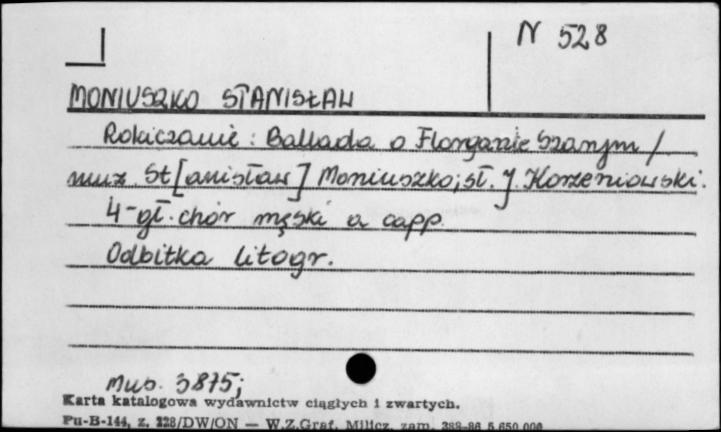 N 528
MONIUSZKO STANISŁAW
Rokiczanie: Ballada o Florganie Szarym /
muz. St[anisław] Moniuszko; sł. J. Korzeniowski.
4-gł. chór męski a capp.
Odbitka litogr.
Mus. 3875;
Karta katalogowa wydawnictw ciągłych i zwartych.
Pu-B-144, z. 228/DW/ON — W.Z.Graf. Milicz, zam. 388-86 5.650.000